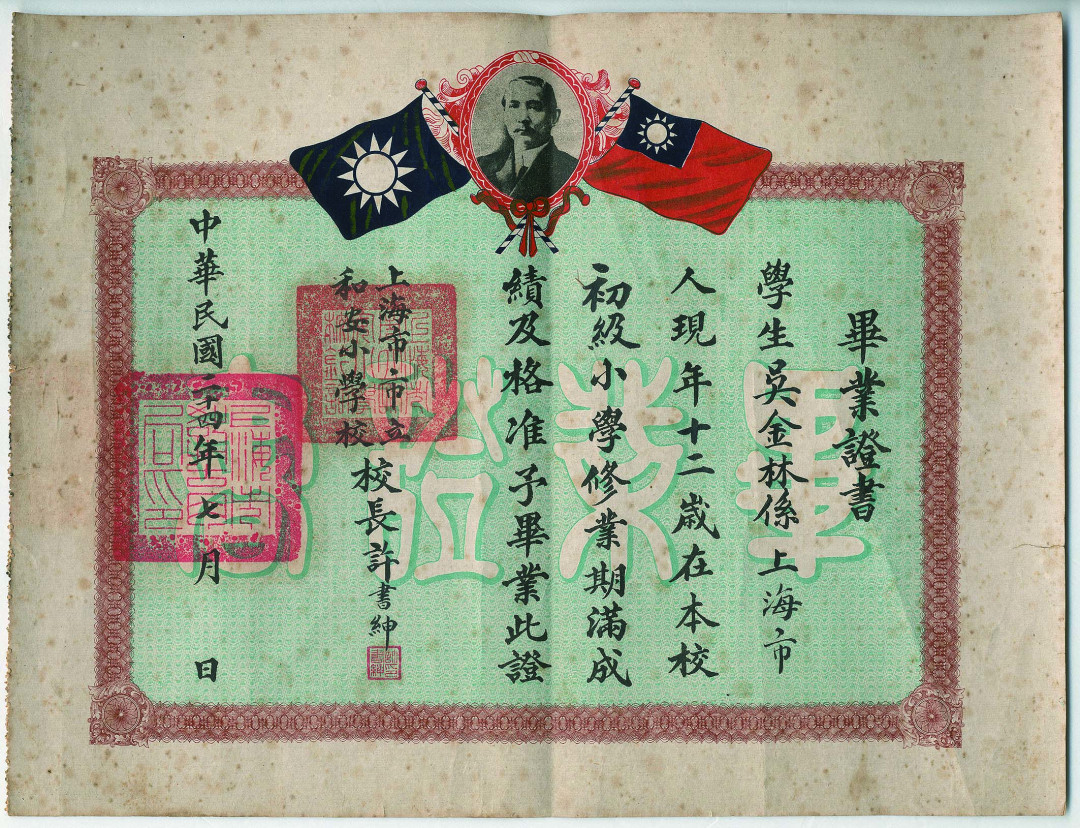 畢業證書
學生吳金林係上海市
人現年十二歲在本校
初級小學修業期滿成
績及格准予畢業此證
上海市市立
和安小學校
校長許書紳
中華民國二十四年七月 日
畢業證書